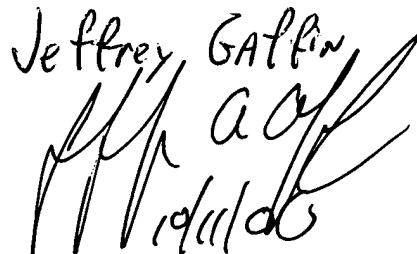 Jeffrey Gaffin
10/11/06